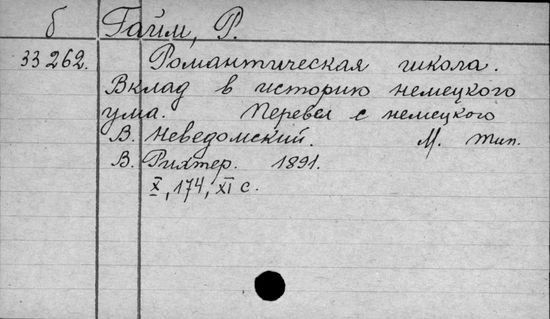 б Гайм, Р.
33262. Романтическая школа.
Вклад в историю немецкого
ума. Перевел с немецкого
В. Неведомский. М. тип.
В. Рихтер. 1891.
X, 174, XI с.